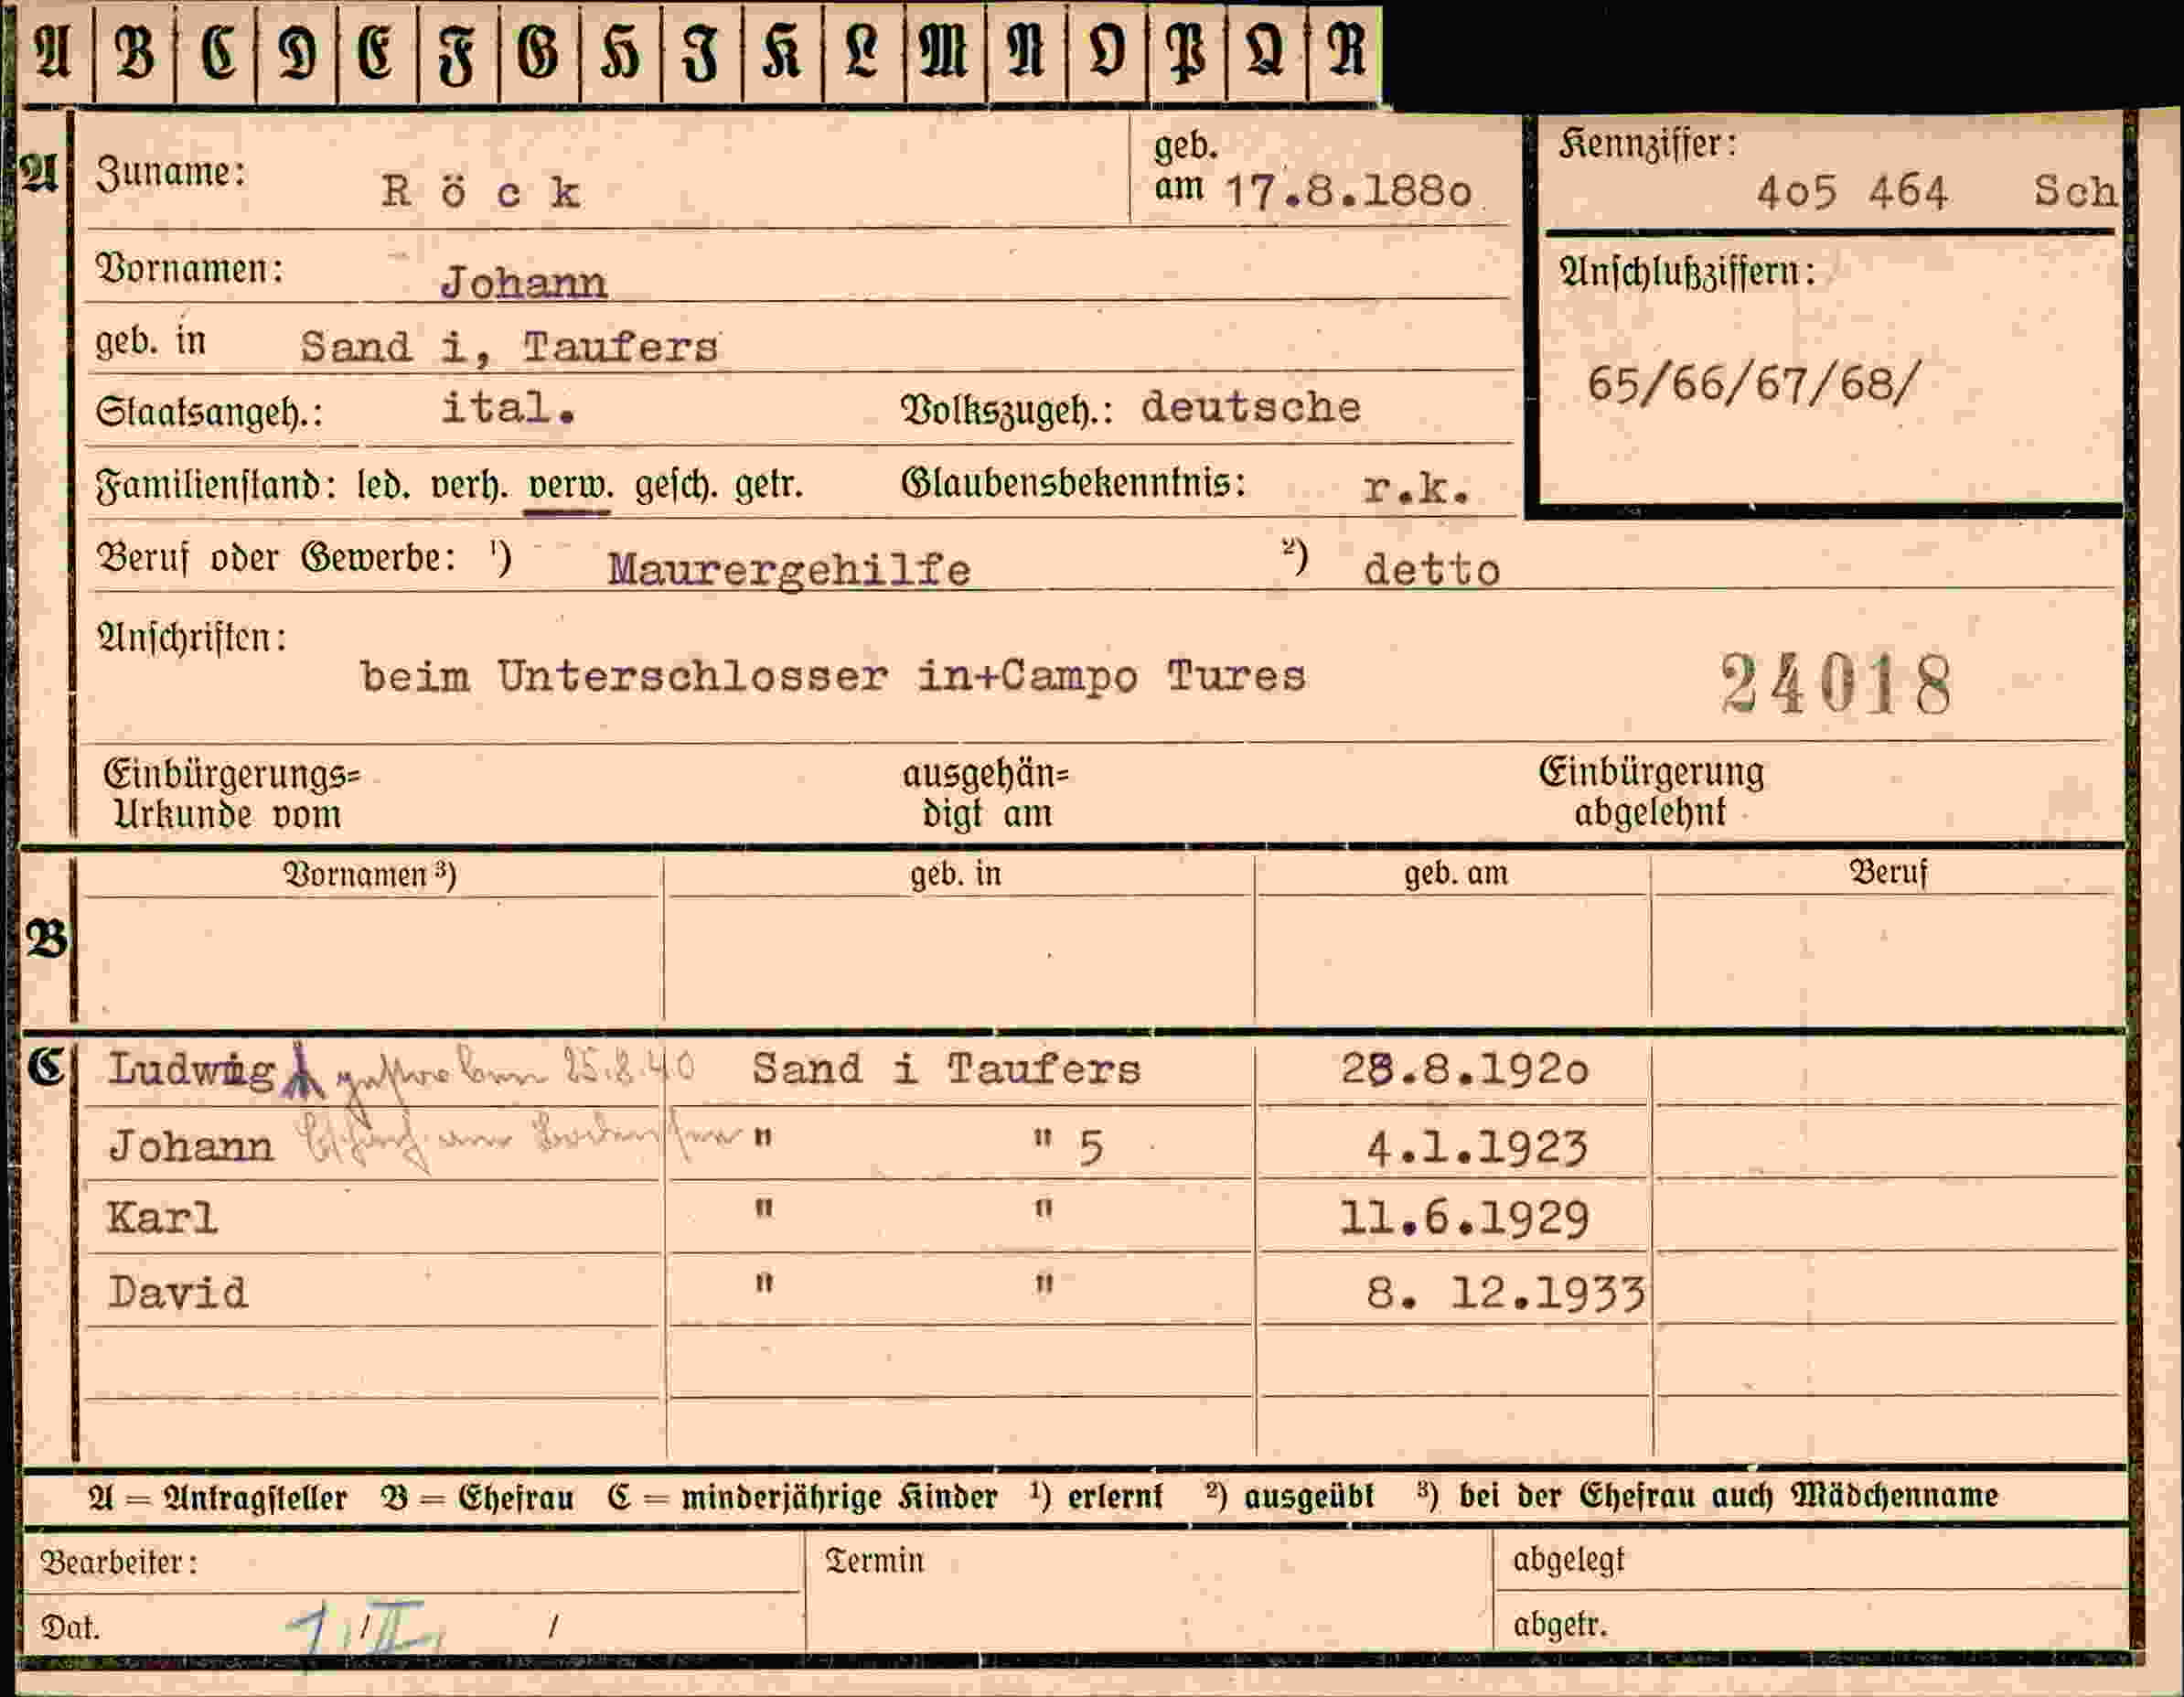 A B C D E F G H I K L M N O P Q R
A Zuname: R ö c k geb. am 17.8.188o Kennziffer: 4o5 464 Sch
Vornamen: Johann Anschlußziffern:
geb. in Sand i, Taufers 65/66/67/68/
Staatsangeh.: ital. Volkszugeh.: deutsche
Familienstand: led. verh. verw. gesch. getr. Glaubensbekenntnis: r.k.
Beruf oder Gewerbe: ¹) Maurergehilfe ²) detto
Anschriften:
beim Unterschlosser in+Campo Tures 24018
Einbürgerungs= ausgehän= Einbürgerung
Urkunde vom digt am abgelehnt
Vornamen ³) geb. in geb. am Beruf
B
C Ludwig gestorben 25.8.40 Sand i Taufers 28.8.192o
Johann " " 5 4.1.1923
Karl " " 11.6.1929
David " " 8. 12.1933
A = Antragsteller B = Ehefrau C = minderjährige Kinder ¹) erlernt ²) ausgeübt ³) bei der Ehefrau auch Mädchenname
Bearbeiter: Termin abgelegt
Dat. 1./II. / abgetr.